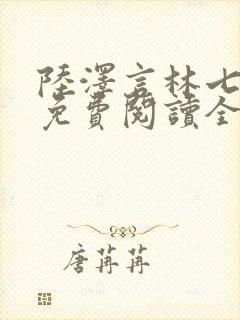 陸澤言林七
免費閱讀全
唐苒苒